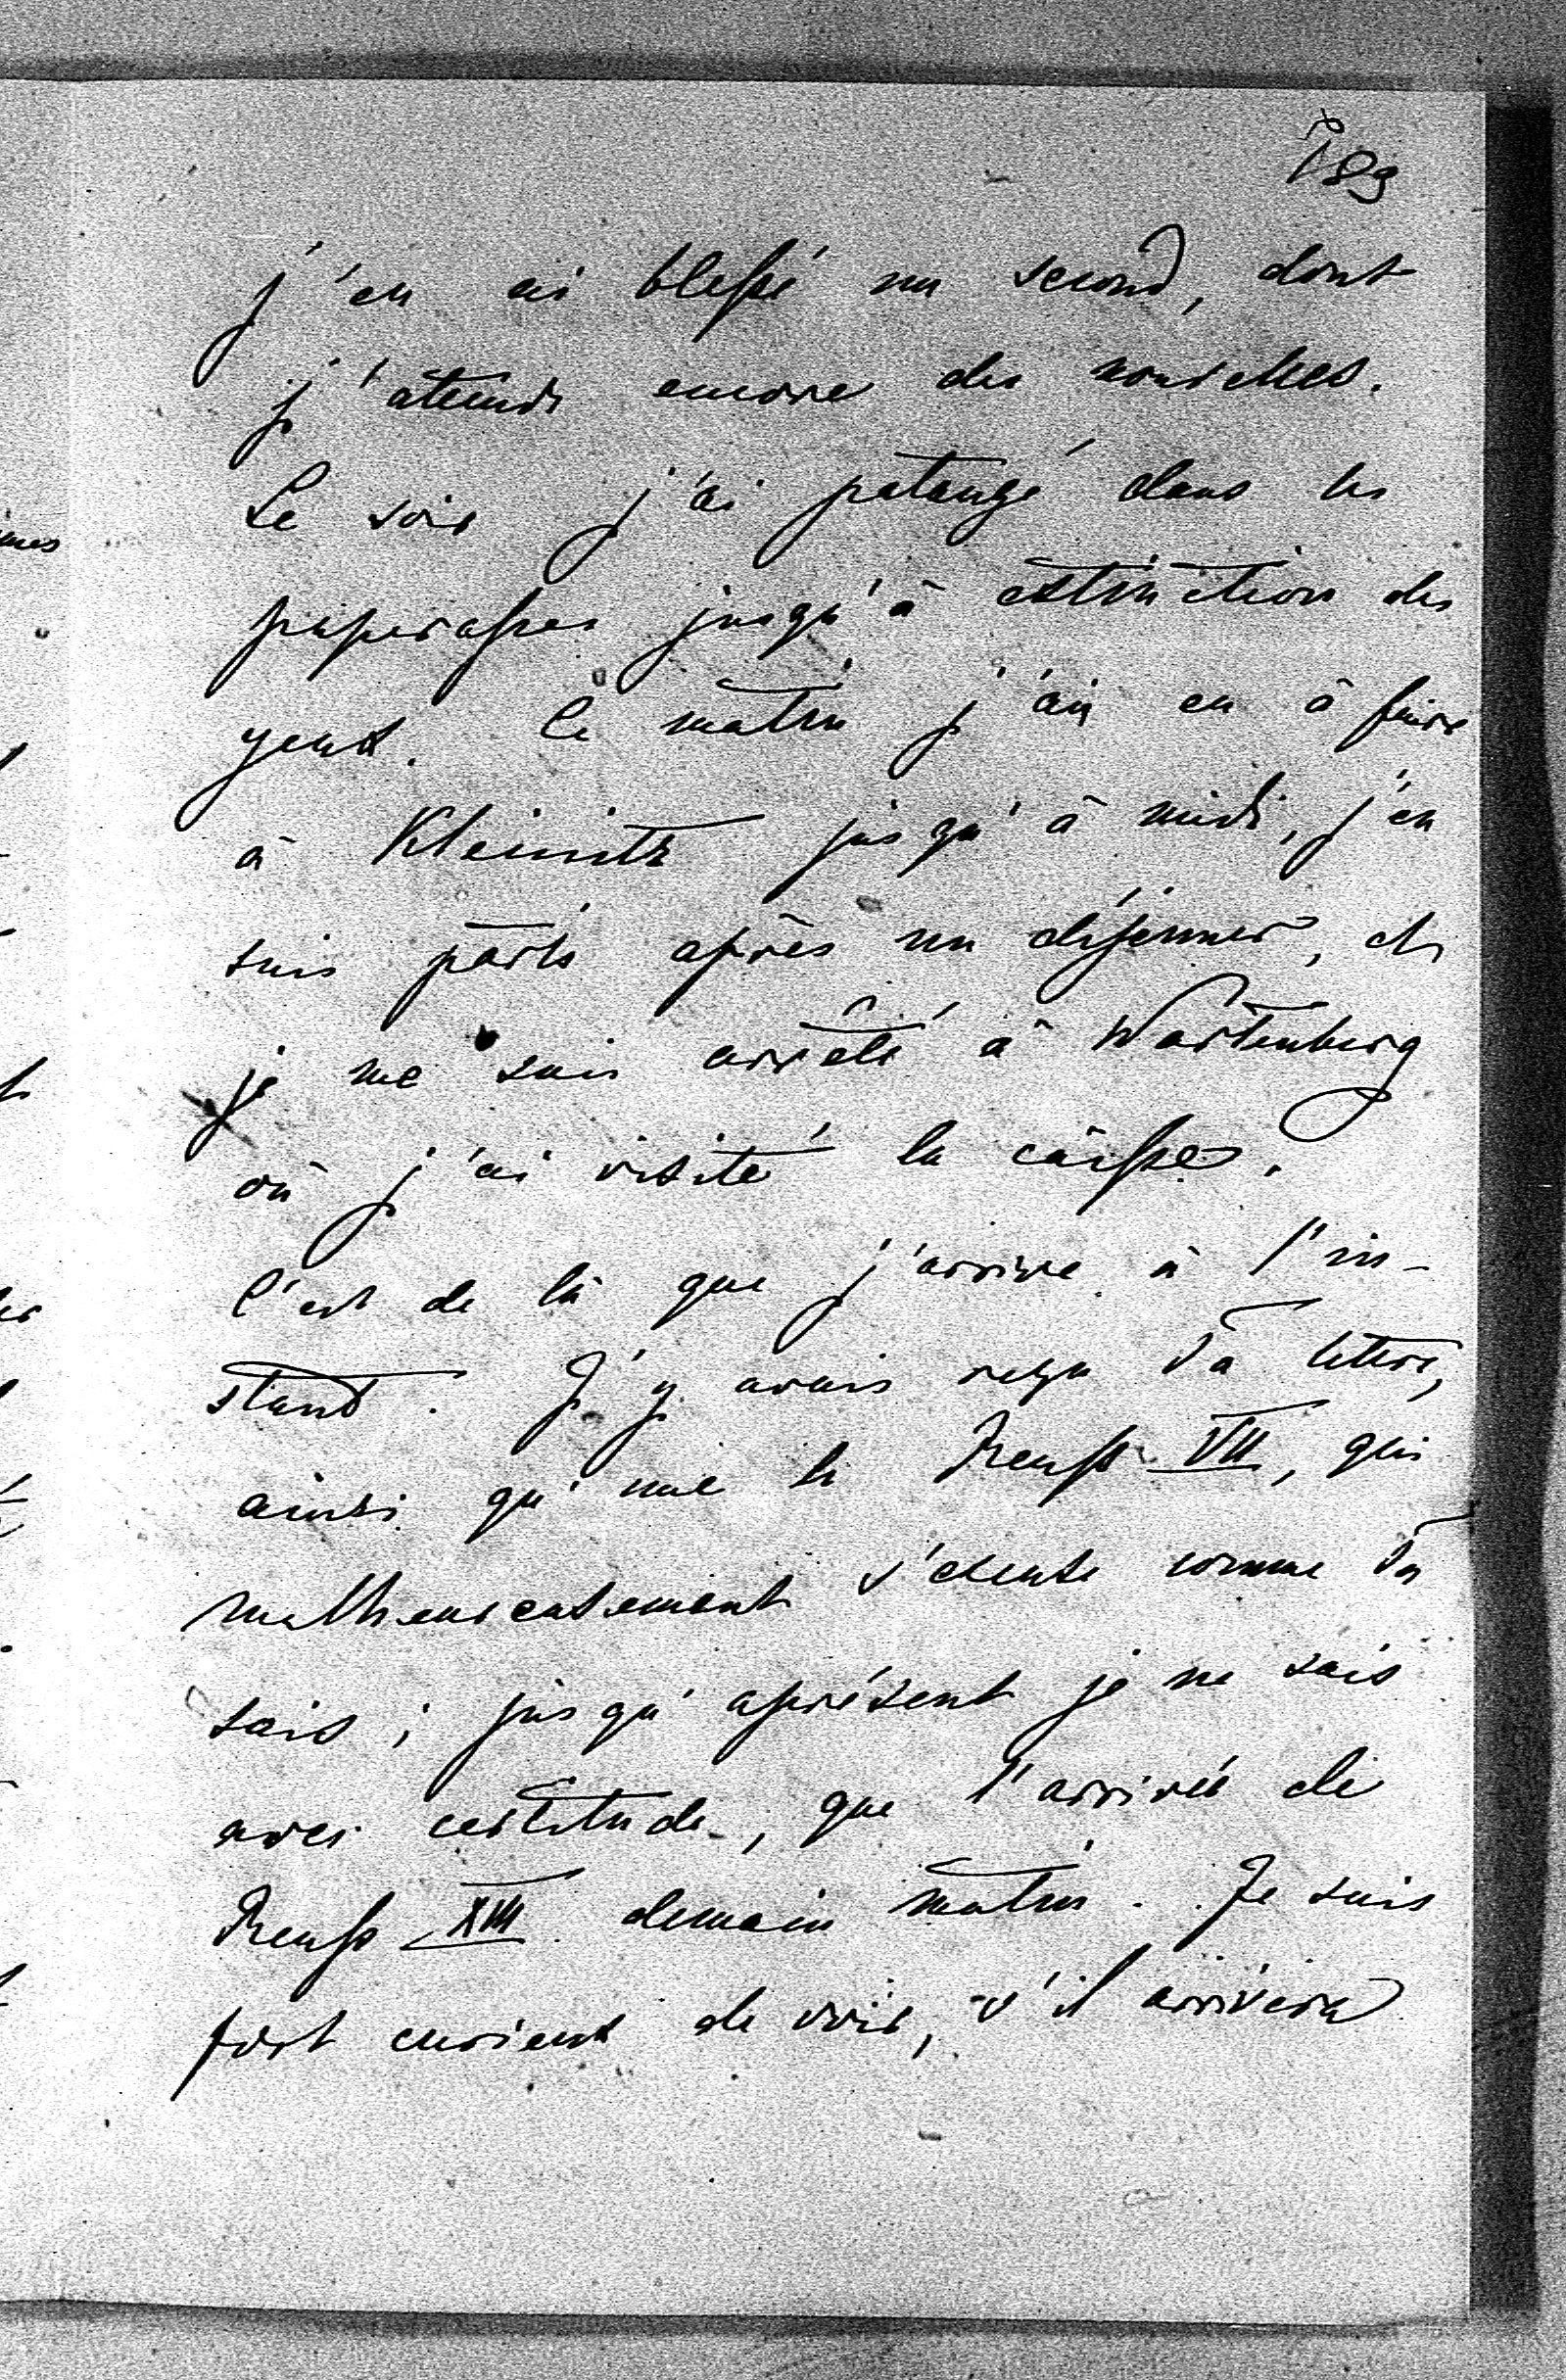 189
j'en ai blessé un second, dont
j'attends encore des nouvelles.
Le soir j'ai patangé dans les
paperasses jusqu'à extinction des
yeux. Le matin j'ai eu à faire
à Kleinitz jusqu'à midi, j'en
suis parti après un déjeuner, et
je me suis arrêté à Wartenberg
où j'ai visité la caisse.
C'est de là que j'arrive à l'in-
stant. J'y avais reçu Ta lettre,
ainsi qu'une de Reuss VII, qui
malheureusement s'excuse comme Tu
sais; jusqu'aprésent je ne sais
avec certitude, que l'arrivée de
Reuss XIII demain matin. Je suis
fort curieux de voir, s'il arrivera